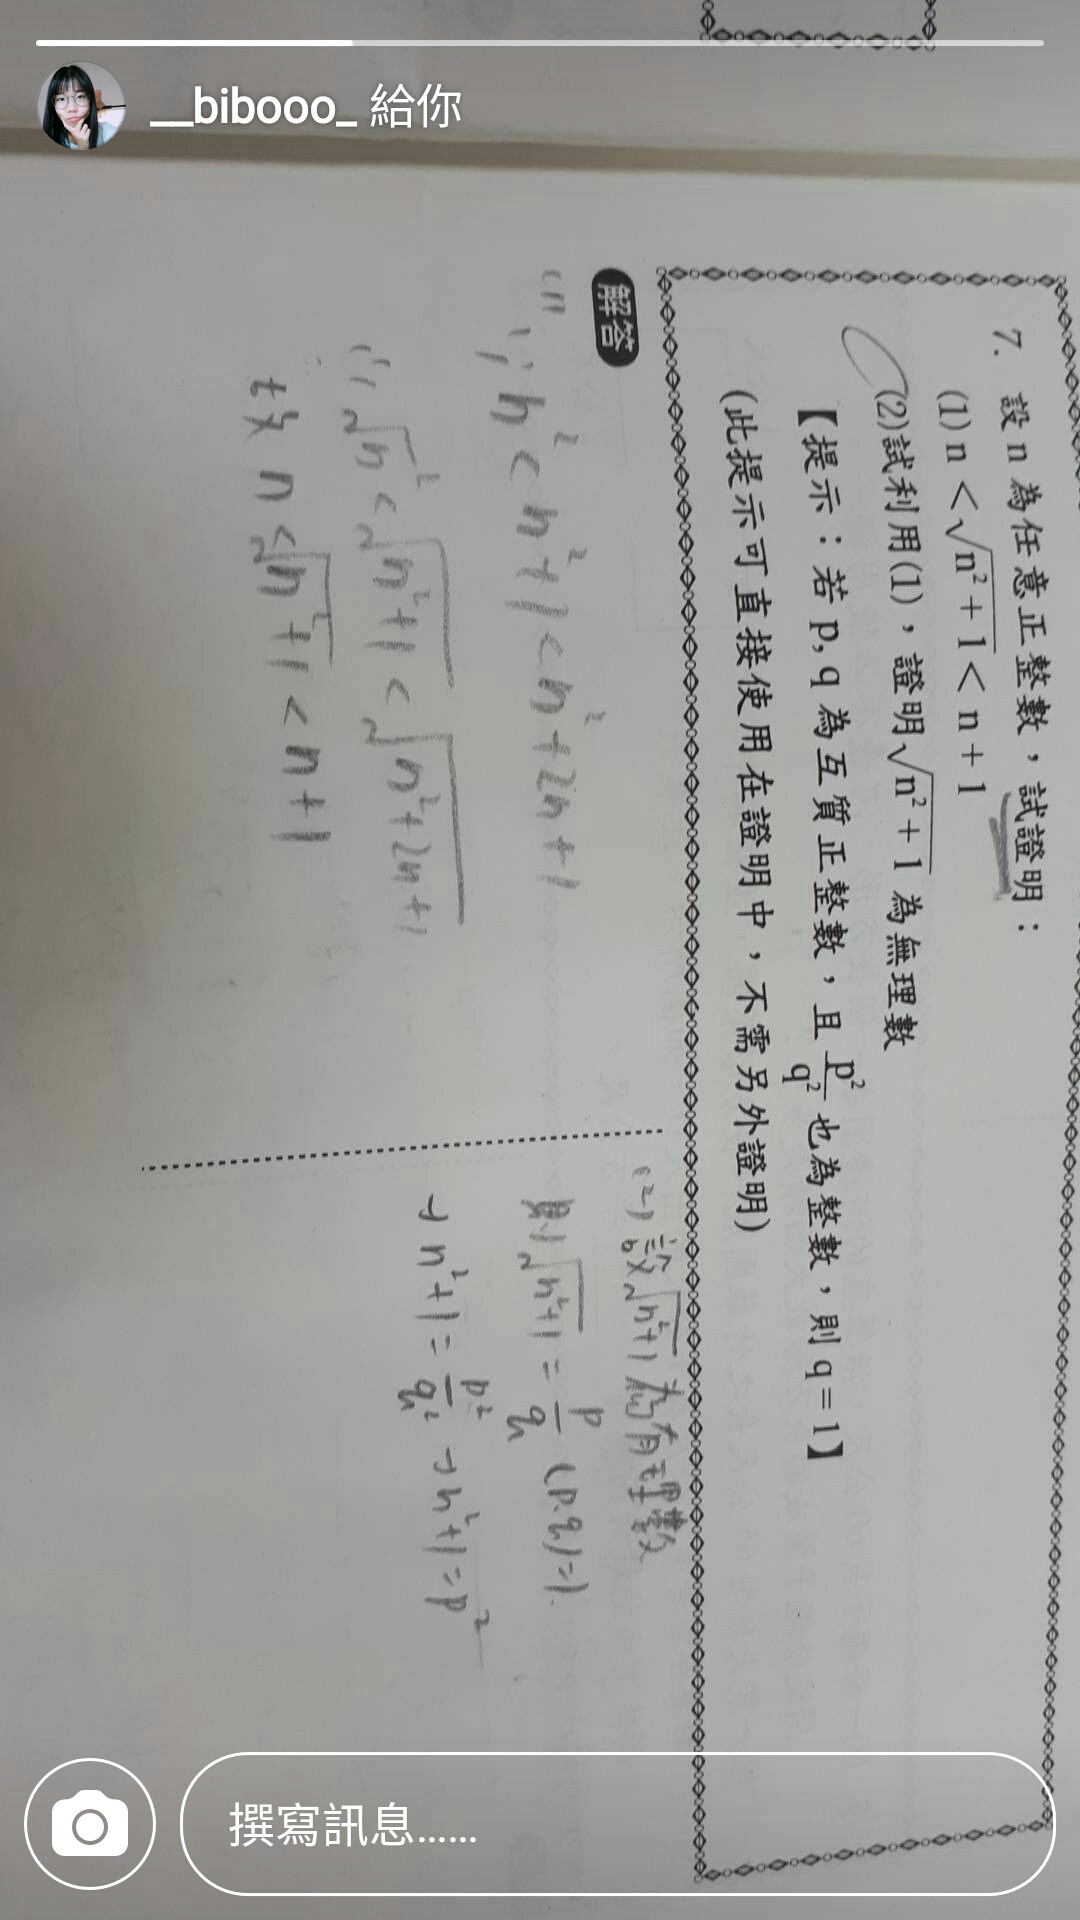 __bibooo_ 給你
7. 設 n 為任意正整數，試證明：
(1) n < √n²+1 < n + 1
(2)試利用(1)，證明√n²+1 為無理數
【提示：若 p, q 為互質正整數，且 p²/q² 也為整數，則 q = 1】
(此提示可直接使用在證明中，不需另外證明)
解答
(1) ∵ n² < n²+1 < n²+2n+1
∴ √n² < √n²+1 < √n²+2n+1
故 n < √n²+1 < n+1
(2) 設√n²+1 為有理數
則√n²+1 = p/q (p,q)=1.
→ n²+1 = p²/q² → n²+1 = p²
撰寫訊息......